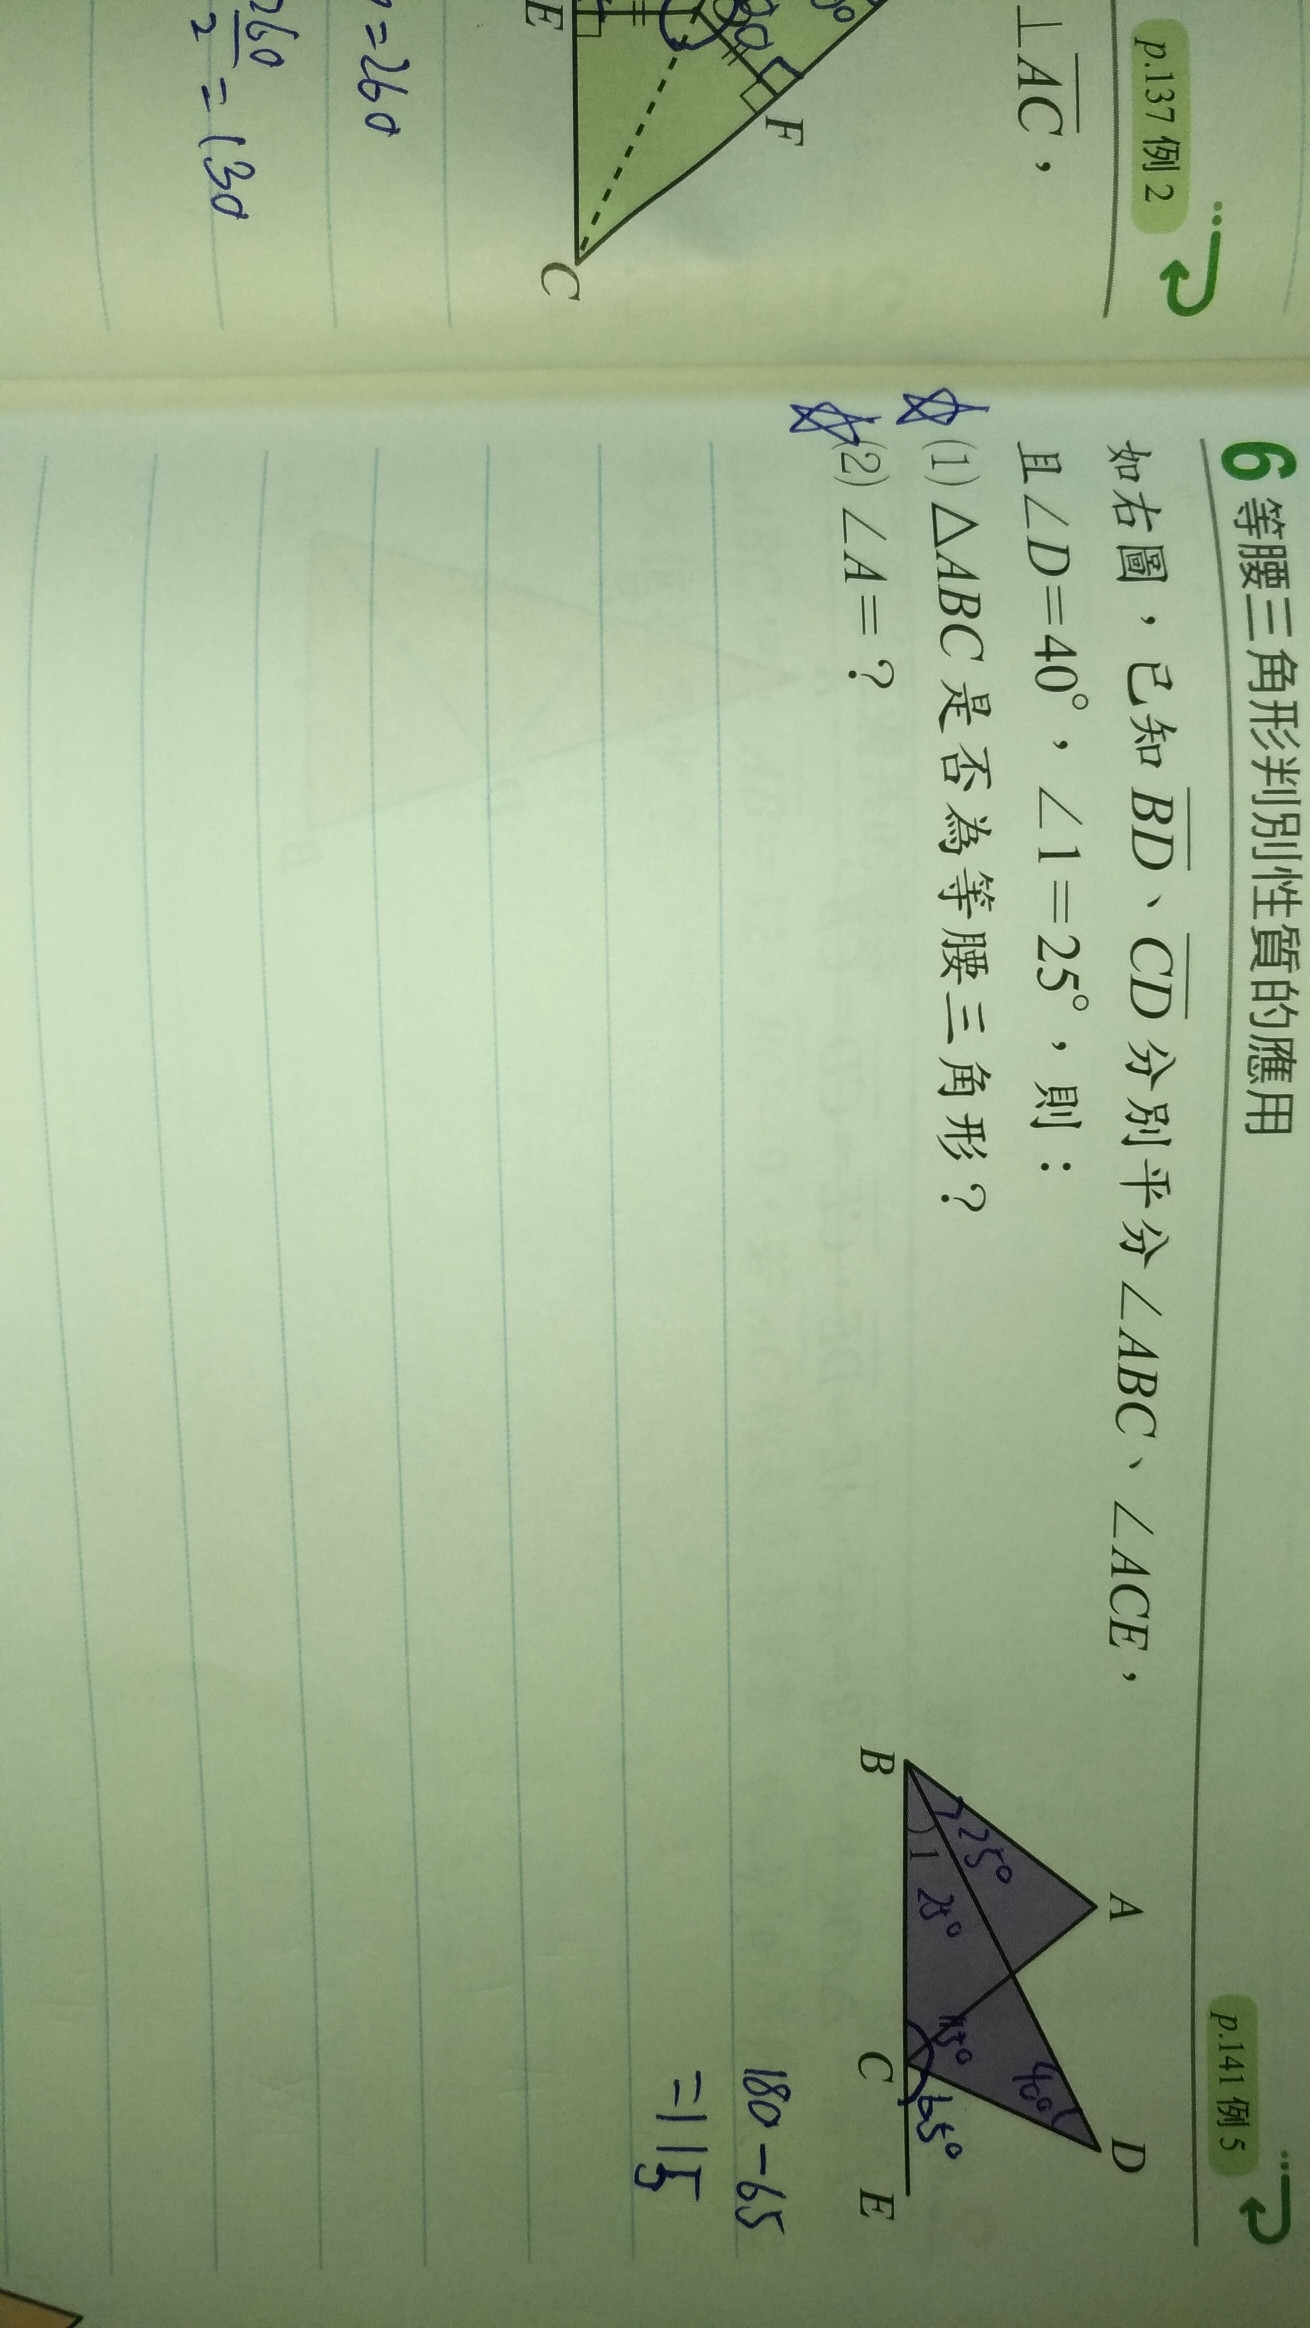 p.137 例2
⊥AC，
F
E
C
=260
260
2
=130
6 等腰三角形判別性質的應用
p.141 例5
如右圖，已知BD、CD分別平分∠ABC、∠ACE，
且∠D=40°，∠1=25°，則：
(1)△ABC是否為等腰三角形？
(2)∠A=？
A
D
B
C
E
1
25°
25°
40°
65°
180-65
=115